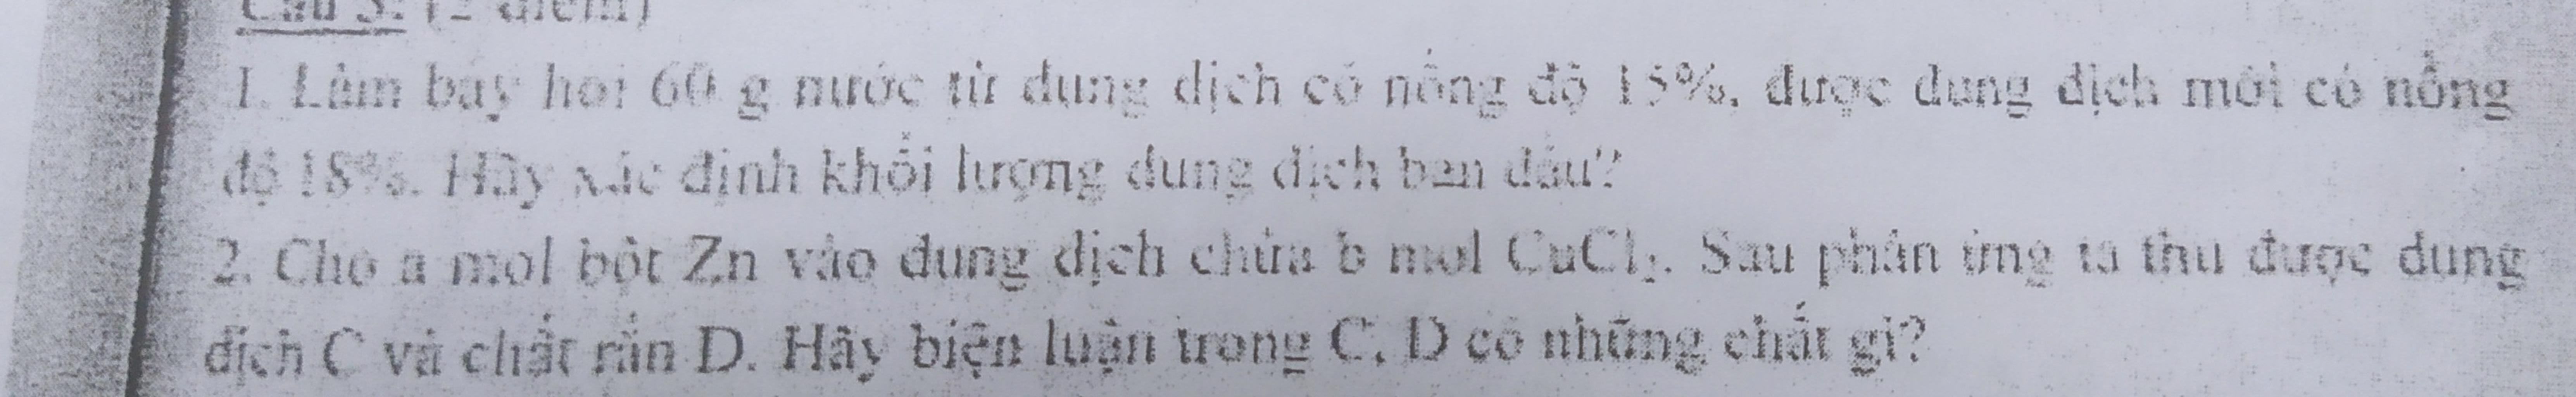 Câu 5: (2 điểm)
1. Làm bay hơi 60 g nước từ dung dịch có nồng độ 15%, được dung dịch mới có nồng
độ 18%. Hãy xác định khối lượng dung dịch ban đầu?
2. Cho a mol bột Zn vào dung dịch chứa b mol CuCl₂. Sau phản ứng ta thu được dung
dịch C và chất rắn D. Hãy biện luận trong C, D có những chất gì?